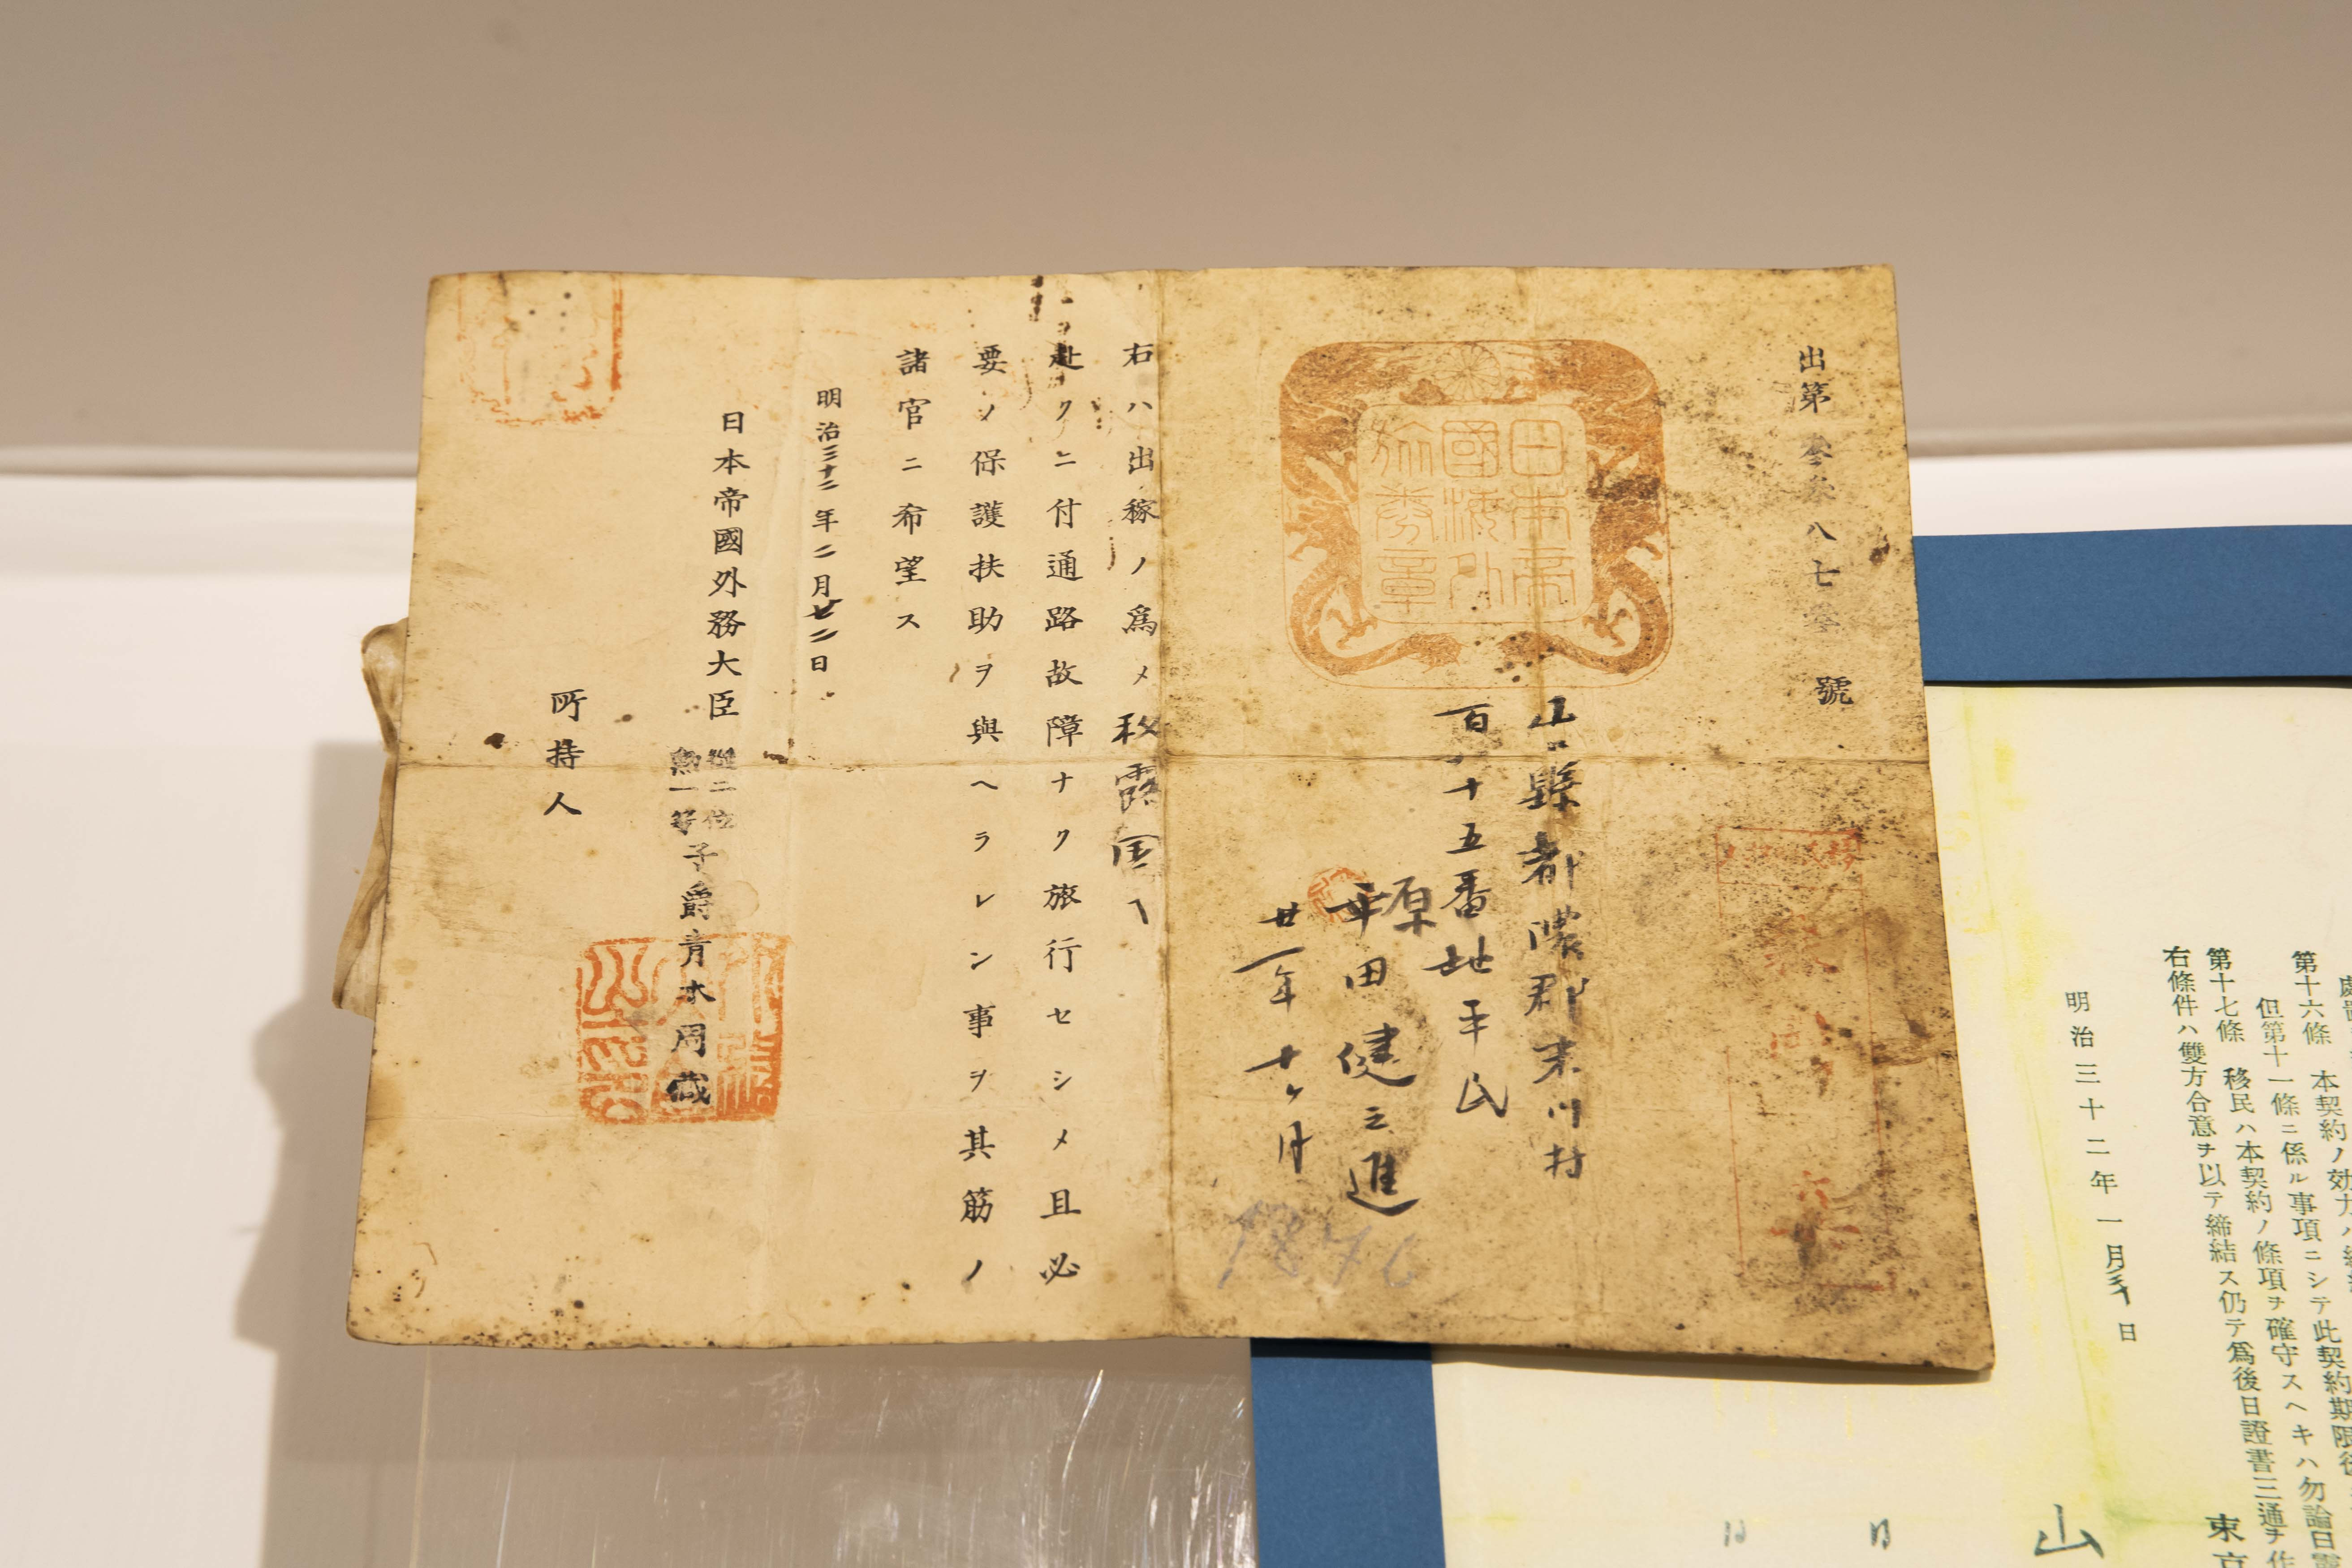 出第 参参八七零 號
日本帝
國海外
旅券章
山口縣都濃郡末川村
百八十五番地平民
原
平田健之進
廿一年十ヶ月
1876
右ハ出稼ノ爲メ秘露國へ
赴クニ付通路故障ナク旅行セシメ且必
要ノ保護扶助ヲ與ヘラレン事ヲ其筋ノ
諸官ニ希望ス
明治三十二年二月廿二日
日本帝國外務大臣
從二位
勲一等
子爵青木周蔵
所持人
第十六條 本契約ノ効力ハ
但第十一條ニ係ル事項ニシテ此契約期限後
第十七條 移民ハ本契約ノ條項ヲ確守スヘキハ勿論
右條件ハ雙方合意ヲ以テ締結ス仍テ爲後日證書三通ヲ作
明治三十二年一月 日
東京
山